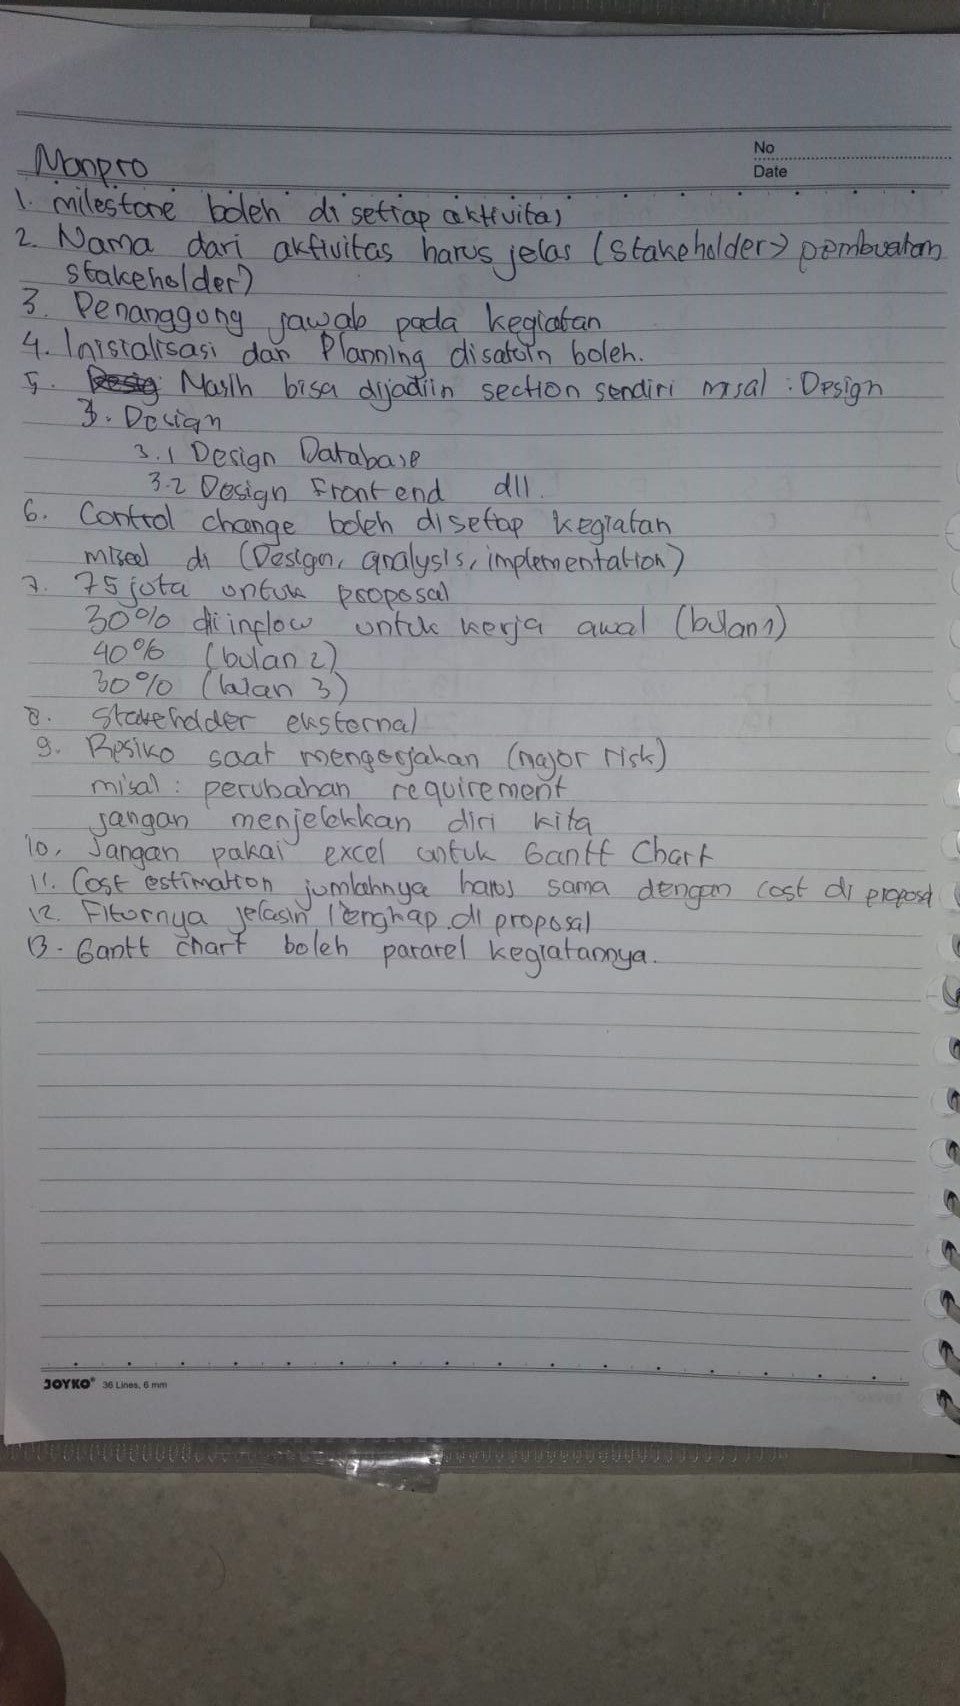 No
Date
Manpro
1. milestone boleh di setiap aktivitas
2. Nama dari aktivitas harus jelas (stakeholder → pembuatan
stakeholder)
3. Penanggung jawab pada kegiatan
4. Inisialisasi dan Planning disatuin boleh.
5. Masih bisa dijadiin section sendiri misal : Design
3. Design
3.1 Design Database
3.2 Design Front end dll.
6. Control change boleh disetiap kegiatan
misal di (Design, analysis, implementation)
7. 75 juta untuk proposal
30% di inflow untuk kerja awal (bulan 1)
40% (bulan 2)
30% (bulan 3)
8. Stakeholder eksternal
9. Resiko saat mengerjakan (major risk)
misal : perubahan requirement
jangan menjelekkan diri kita
10. Jangan pakai excel untuk Gantt Chart
11. Cost estimation jumlahnya harus sama dengan cost di proposal
12. Fiturnya jelasin lengkap di proposal
13. Gantt chart boleh pararel kegiatannya.
JOYKO® 36 Lines, 6 mm